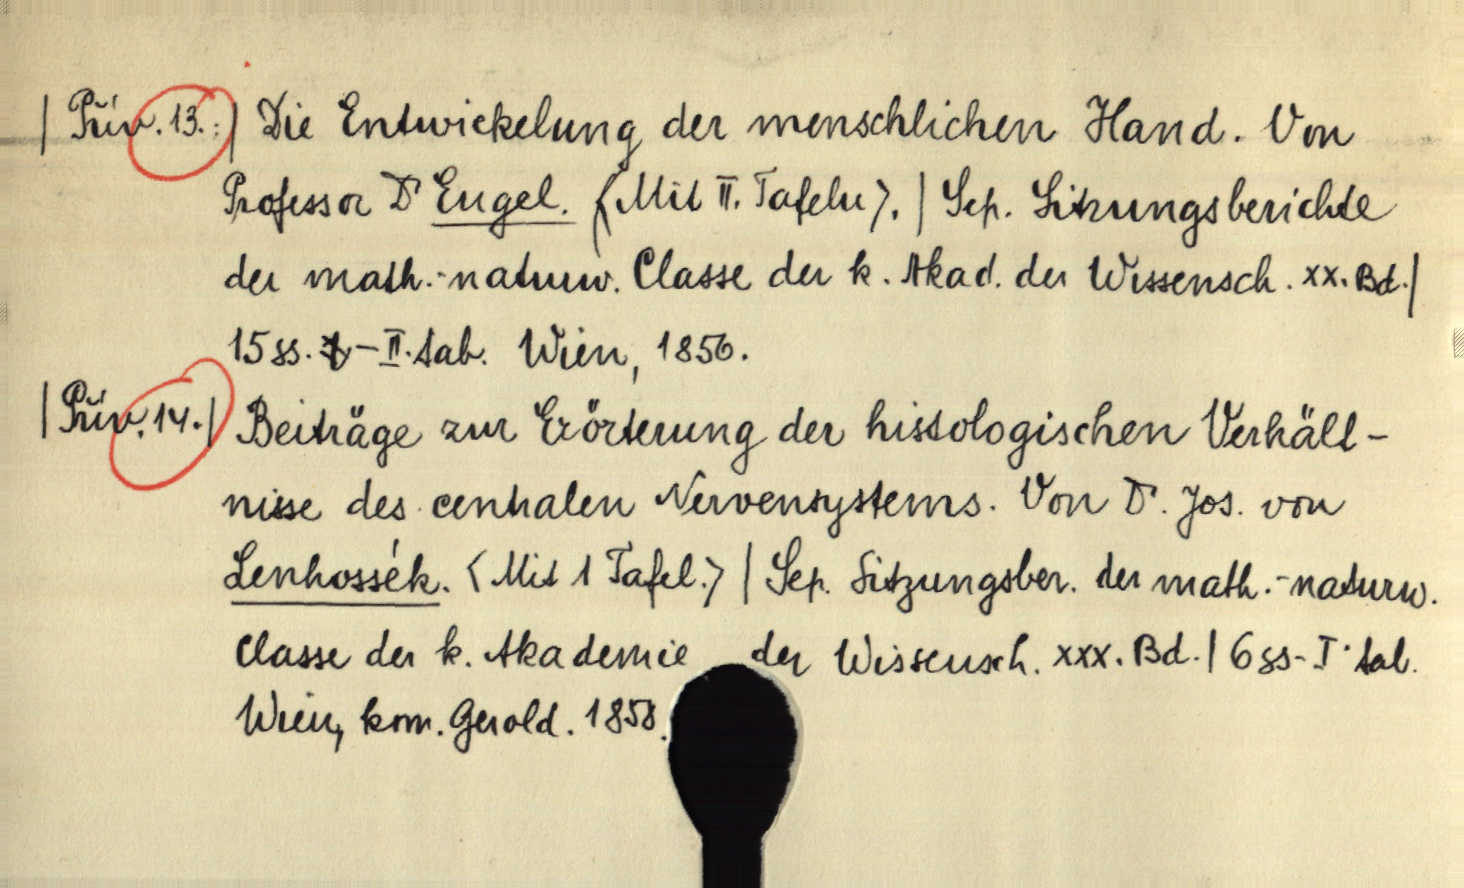 | Přív. 13.:| Die Entwickelung der menschlichen Hand. Von
Professor Dr Engel. (Mit II. Tafeln). | Sep. Sitzungsberichte
der math.-naturw. Classe der k. Akad. der Wissensch. XX. Bd.|
15 ss. - II. tab. Wien, 1856.
| Přív. 14.| Beiträge zur Erörterung der histologischen Verhält-
nisse des centralen Nervensystems. Von Dr. Jos. von
Lenhossék. (Mit 1 Tafel.) | Sep. Sitzungsber. der math.-naturw.
Classe der k. Akademie der Wissensch. XXX. Bd. | 6 ss - I. tab.
Wien, kom. Gerold. 1858.